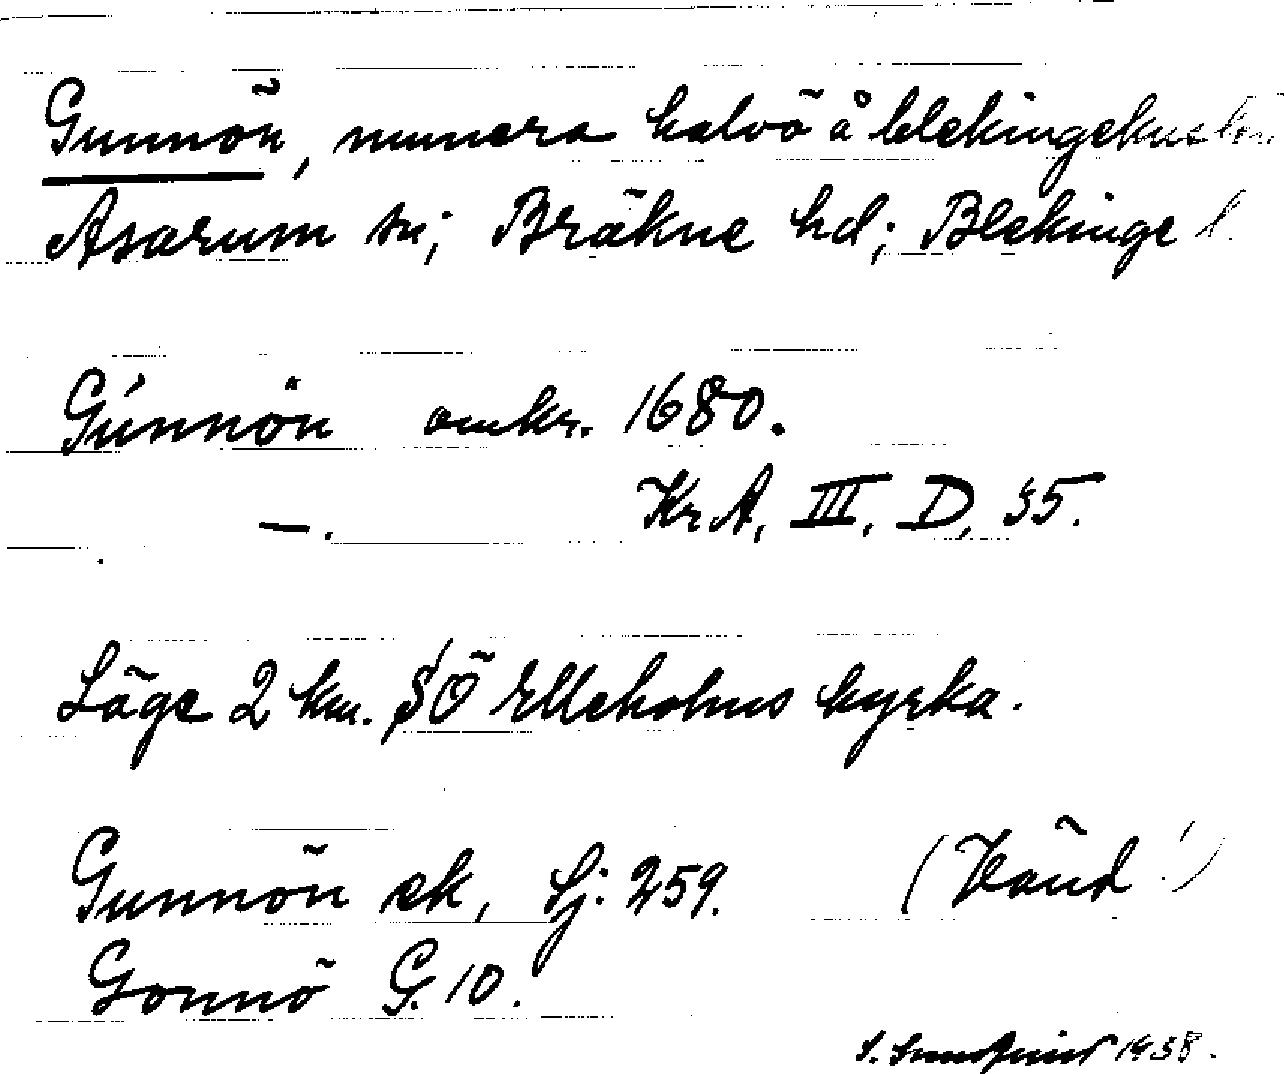 Gunnön, numera halvö å blekingekusten
Asarum sn; Bräkne hd; Blekinge l.
Gúnnön omkr. 1680.
—. KrA, III, D, 35.
Läge 2 km. SÖ Elleholms kyrka.
Gunnön ek, Sj. 259. (Vänd!)
Gonnö G. 10.
1938.